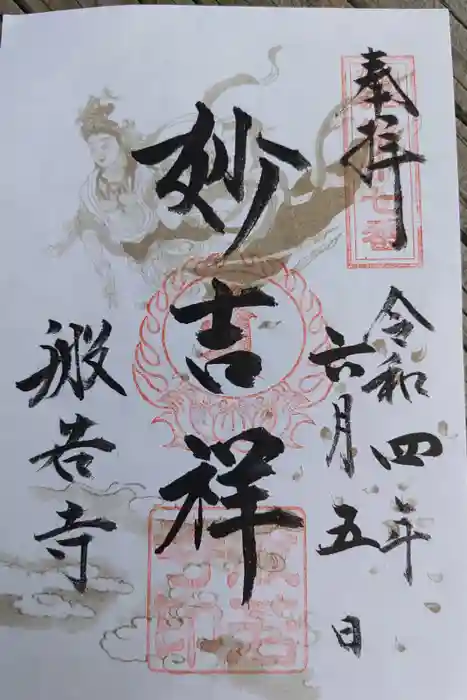 奉拝
令和四年
六月五日
妙吉祥
般若寺